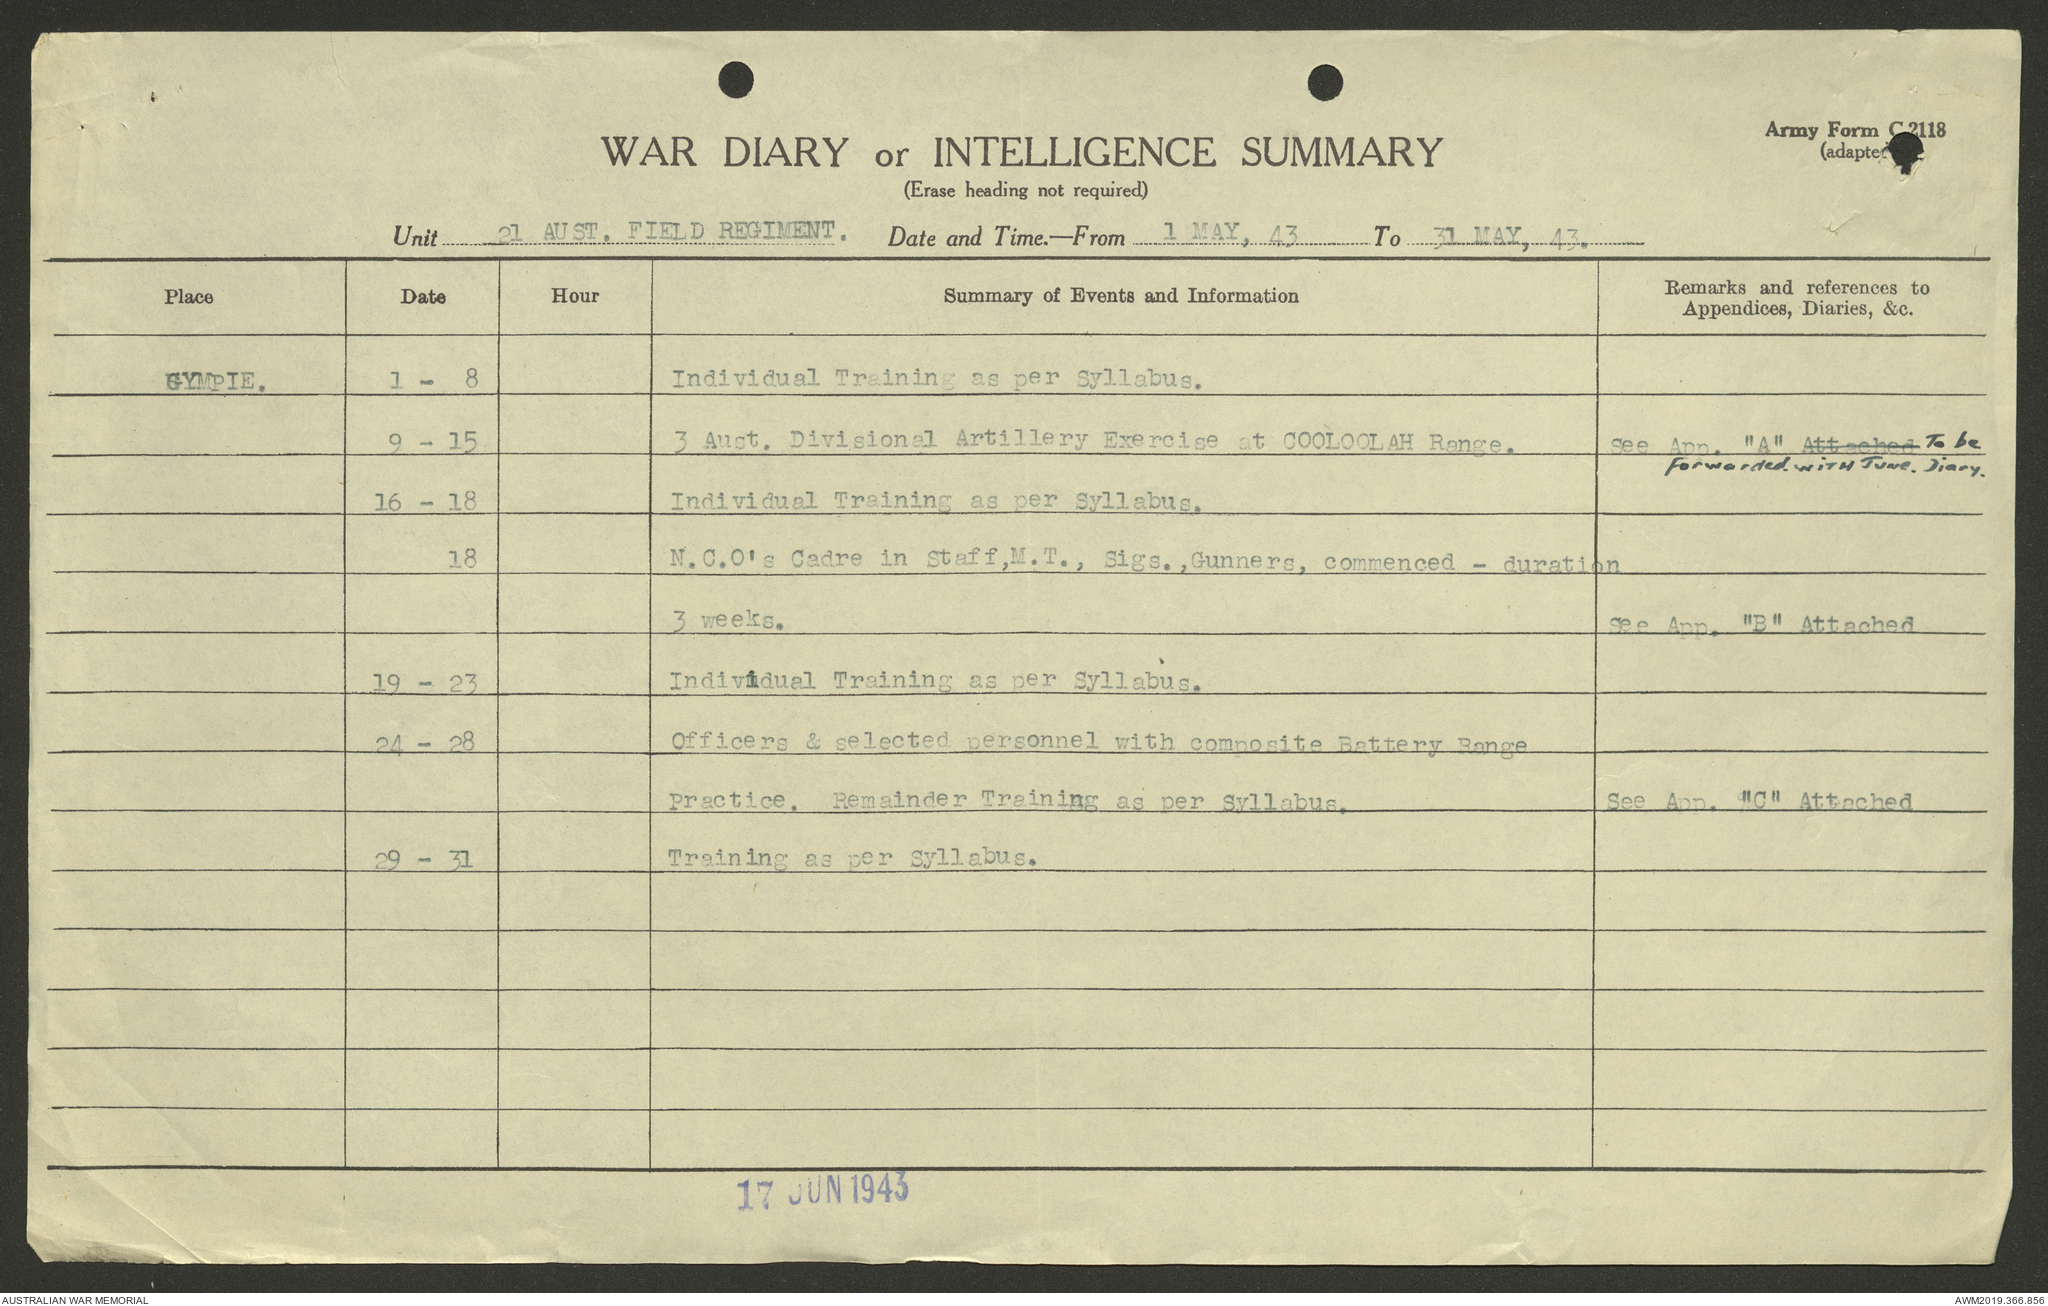 Army Form C 2118
WAR DIARY or INTELLIGENCE SUMMARY
(Erase heading not required)
Unit 21 AUST. FIELD REGIMENT. Date and Time.—From 1 MAY, 43 To 31 MAY, 43.
Place Date Hour Summary of Events and Information Remarks and references to
Appendices, Diaries, &c.
GYMPIE. 1 - 8 Individual Training as per Syllabus.
9 - 15 3 Aust. Divisional Artillery Exercise at COOLOOLAH Range. See App. "A" Attached To be
forwarded with June. Diary.
16 - 18 Individual Training as per Syllabus.
18 N.C.O's Cadre in Staff,M.T., Sigs.,Gunners, commenced - duration
3 weeks. See App. "B" Attached
19 - 23 Individual Training as per Syllabus.
24 - 28 Officers & selected personnel with composite Battery Range
Practice. Remainder Training as per Syllabus. See App. "C" Attached
29 - 31 Training as per Syllabus.
17 JUN 1943
AUSTRALIAN WAR MEMORIAL AWM2019.366.856